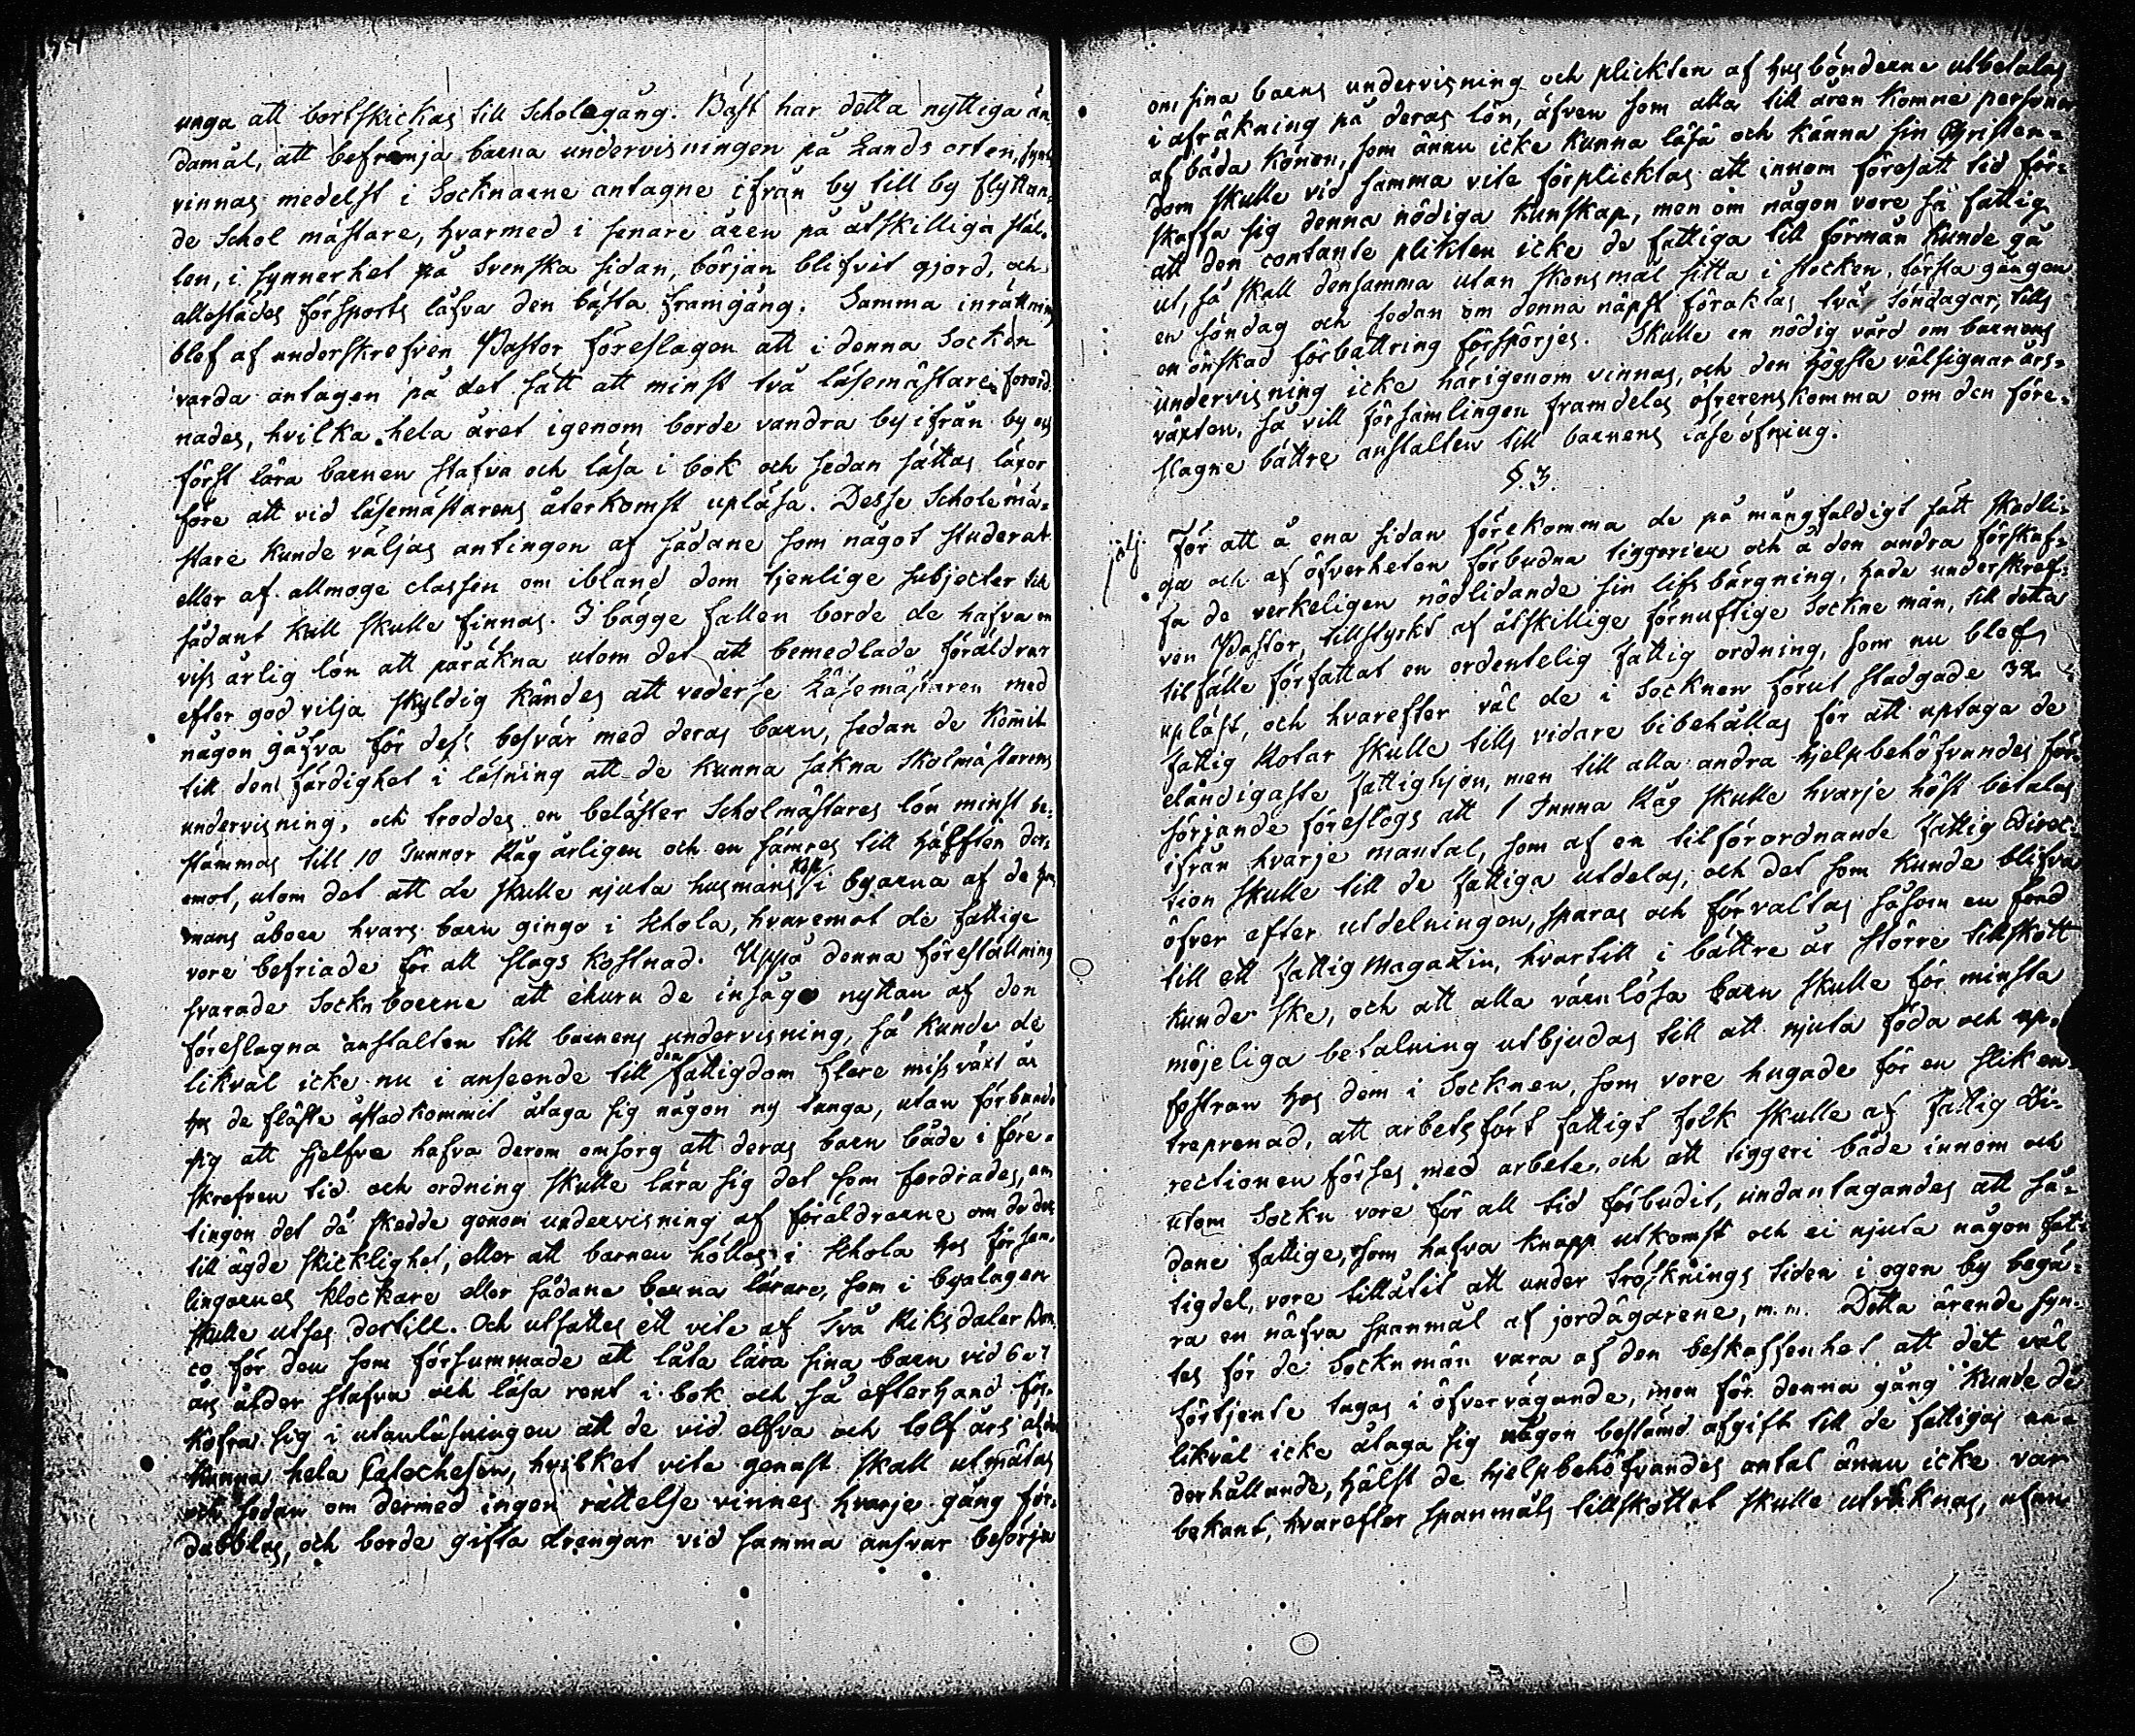 unga att bortskickas till Scholegång. Bäst har detta nyttiga än
damål, att befrämja barna undervisningen på Lands orten, synts
vinnas medelst i Socknarne antagne ifrån by till by flyttan-
de Schol mästare, hvarmed i senare åren på åtskilliga stäl-
len, i synnerhet på Svenska sidan, början blifvit gjord, och
allestädes försports läfva den bästa framgång. Samma inrättning
blef af underskrefven Pastor föreslagen att i denna Socken
varda antagen på det sätt att minst två läsemästare förord-
nades, hvilka hela året igenom borde vandra by ifrån by och
först lära barnen stafva och läsa i bok och sedan sättas läxor
före att vid läsemästarens återkomst upläsa. Desse Scholemä-
stare kunde väljas antingen af sådane som något studerat
eller af allmoge classen om ibland dem tjenlige subjecter till
sådant kall skulle finnas. I bägge fallen borde de hafva en
viss årlig lön att påräkna utom det att bemedlade föräldrar
efter god vilja skyldig kändes att vederse Läsemästaren med
någon gåfva för dess besvär med deras barn, sedan de kommit
till den färdighet i läsning att de kunna sakna Skolmästarens
undervisning, och troddes en beläster Scholmästares lön minst be-
stämmas till 10 Tunnor Råg årligen och en sämres till hälften der-
emot, utom det att de skulle njuta husmans kost i byarna af de hem
mans åboer hvars barn gingo i Schola, hvaremot de fattige
vore befriade för all slags kostnad. Uppå denna föreställning
svarade Sockn boerne att ehuru de insågo nyttan af den
föreslagna anstalten till barnens undervisning, så kunde de
likväl icke nu i anseende till den fattigdom flere missväxt år
hos de fläste åstadkommit åtaga sig någon ny tunga, utan förbundo
sig att sjelfve hafva derom omsorg att deras barn både i före-
skrefven tid och ordning skulle lära sig det som fordrades, an
tingen det då skedde genom undervisning af föräldrarne om de der
till ägde skicklighet, eller att barnen höllos i Schola hos försam-
lingarnes klockare eller sådane barna lärare, som i byalagen
skulle utses dertill. Och utsattes ett vite af Två Riksdaler Ban
co för den som försummade att låta lära sina barn vid 6 a 7
års ålder stafva och läsa rent i bok och så efterhand för-
kofra sig i utanläsningen att de vid elfva och tolf års ålder
kunna hela Catechesen, hvilket vite genast skall utmätas
och sedan om dermed ingen rättelse vinnes hvarje gång för-
dubblas, och borde gifta drengar vid samma answar besörja
om sina barns undervisning och plickten af husbönderne utbetalas
i afräkning på deras lön, äfven som alla till åren komne personer
af båda könen, som ännu icke kunna läsa och känna sin Christen-
dom skulle vid samma vite förplicktas att innom föresatt tid för-
skaffa sig denna nödiga kunskap, men om någon vore så fattig
att den contante plikten icke de fattiga till förmån kunde gå
ut, så skall densamma utan skonsmål sitta i stocken, första gången
en söndag och sedan om denna näpst föraktas två söndagar, tills
en önskad förbättring försporjes. Skulle en nödig vård om barnens
undervisning icke härigenom vinnas, och den högste välsignar års-
växten, så vill församlingen framdeles öfverenskomma om den före-
slagne bättre anstalten till barnens läse öfning.
§. 3.
För att å ena sidan förekomma de på mångfaldigt sätt skadli-
ga och af öfverheten förbudna tiggerier och å den andra förskaf-
fa de verkeligen nödlidande sin lifs bärgning, hade underskref-
ven Pastor, tillstyrkt af åtskillige förnuftige Sockne män, till detta
tilfälle författat en ordentelig fattig ordning, som nu blef
upläst, och hvarefter väl de i Socknen förut stadgade 32
fattig Rotar skulle tills vidare bibehållas för att uptaga de
eländigaste fattighjon, men till alla andra hjelpbehöfvandes för-
sörjande föreslogs att 1 Tunna Råg skulle hvarje höst betalas
ifrån hvarje mantal, som af en tilförordnande fattig Direc-
tion skulle till de fattiga utdelas, och det som kunde blifva
öfver efter utdelningen, sparas och förvaltas såsom en fond
till ett fattig Magazin, hvartill i bättre år större tillskott
kunde ske, och att alla värnlösa barn skulle för minsta
möjeliga betalning utbjudas till att njuta föda och up-
fostran hos dem i Socknen, som vore hugade för en slik en-
treprenad, att arbetsfört fattigt folk skulle af fattig Di-
rectionen förses med arbete, och att tiggeri både innom och
utom Sockn vore för all tid förbudit, undantagandes att så-
dane fattige, som hafva knapp utkomst och ei njuta någon fat-
tigdel, vore tillåtit att under tröskningstiden i egen by begä-
ra en näfva spanmål af jordägarene, m.m. Detta ärende syn-
tes för de Sockn män vara af den beskaffenhet att det väl
förtjente tagas i öfvervägande, men för denna gång kunde de
likväl icke åtaga sig någon bestämd afgift till de fattigas un-
derhållande, hälst de hjelpbehöfvandes antal ännu icke var
bekant, hvarefter spanmåls tillskottet skulle uträknas, utan